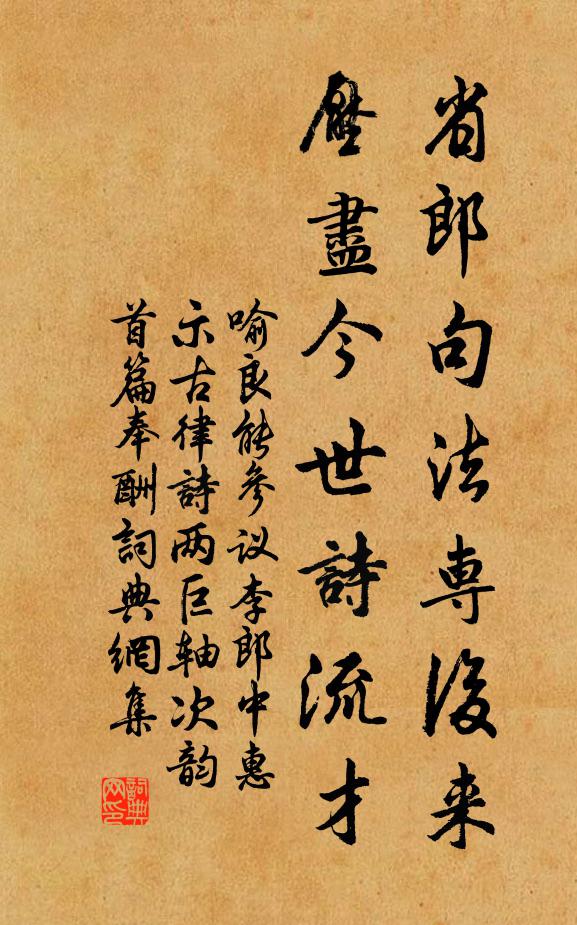 省郎句法専後来
壓盡今世詩流才
喻良能參议李郎中惠
示古律詩两巨轴次韵
首篇奉酬詞典網集
詞典网印